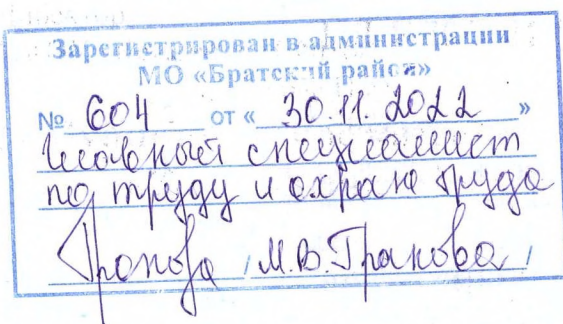 Зарегистрирован в администрации
МО «Братский район»
№ 604 от « 30.11.2022 »
Главный специалист
по труду и охране труда
/ М.В. /